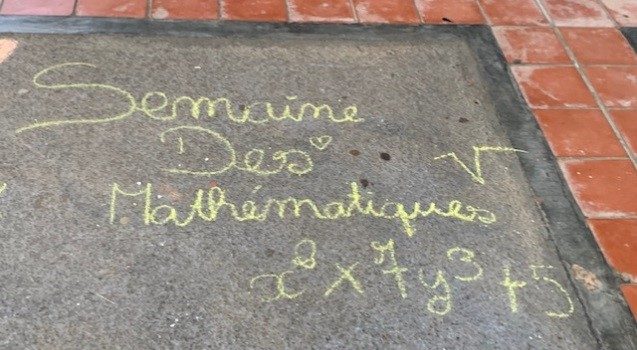 Semaine
Des
√
Mathématiques
x⁸ x 7y³ + 5